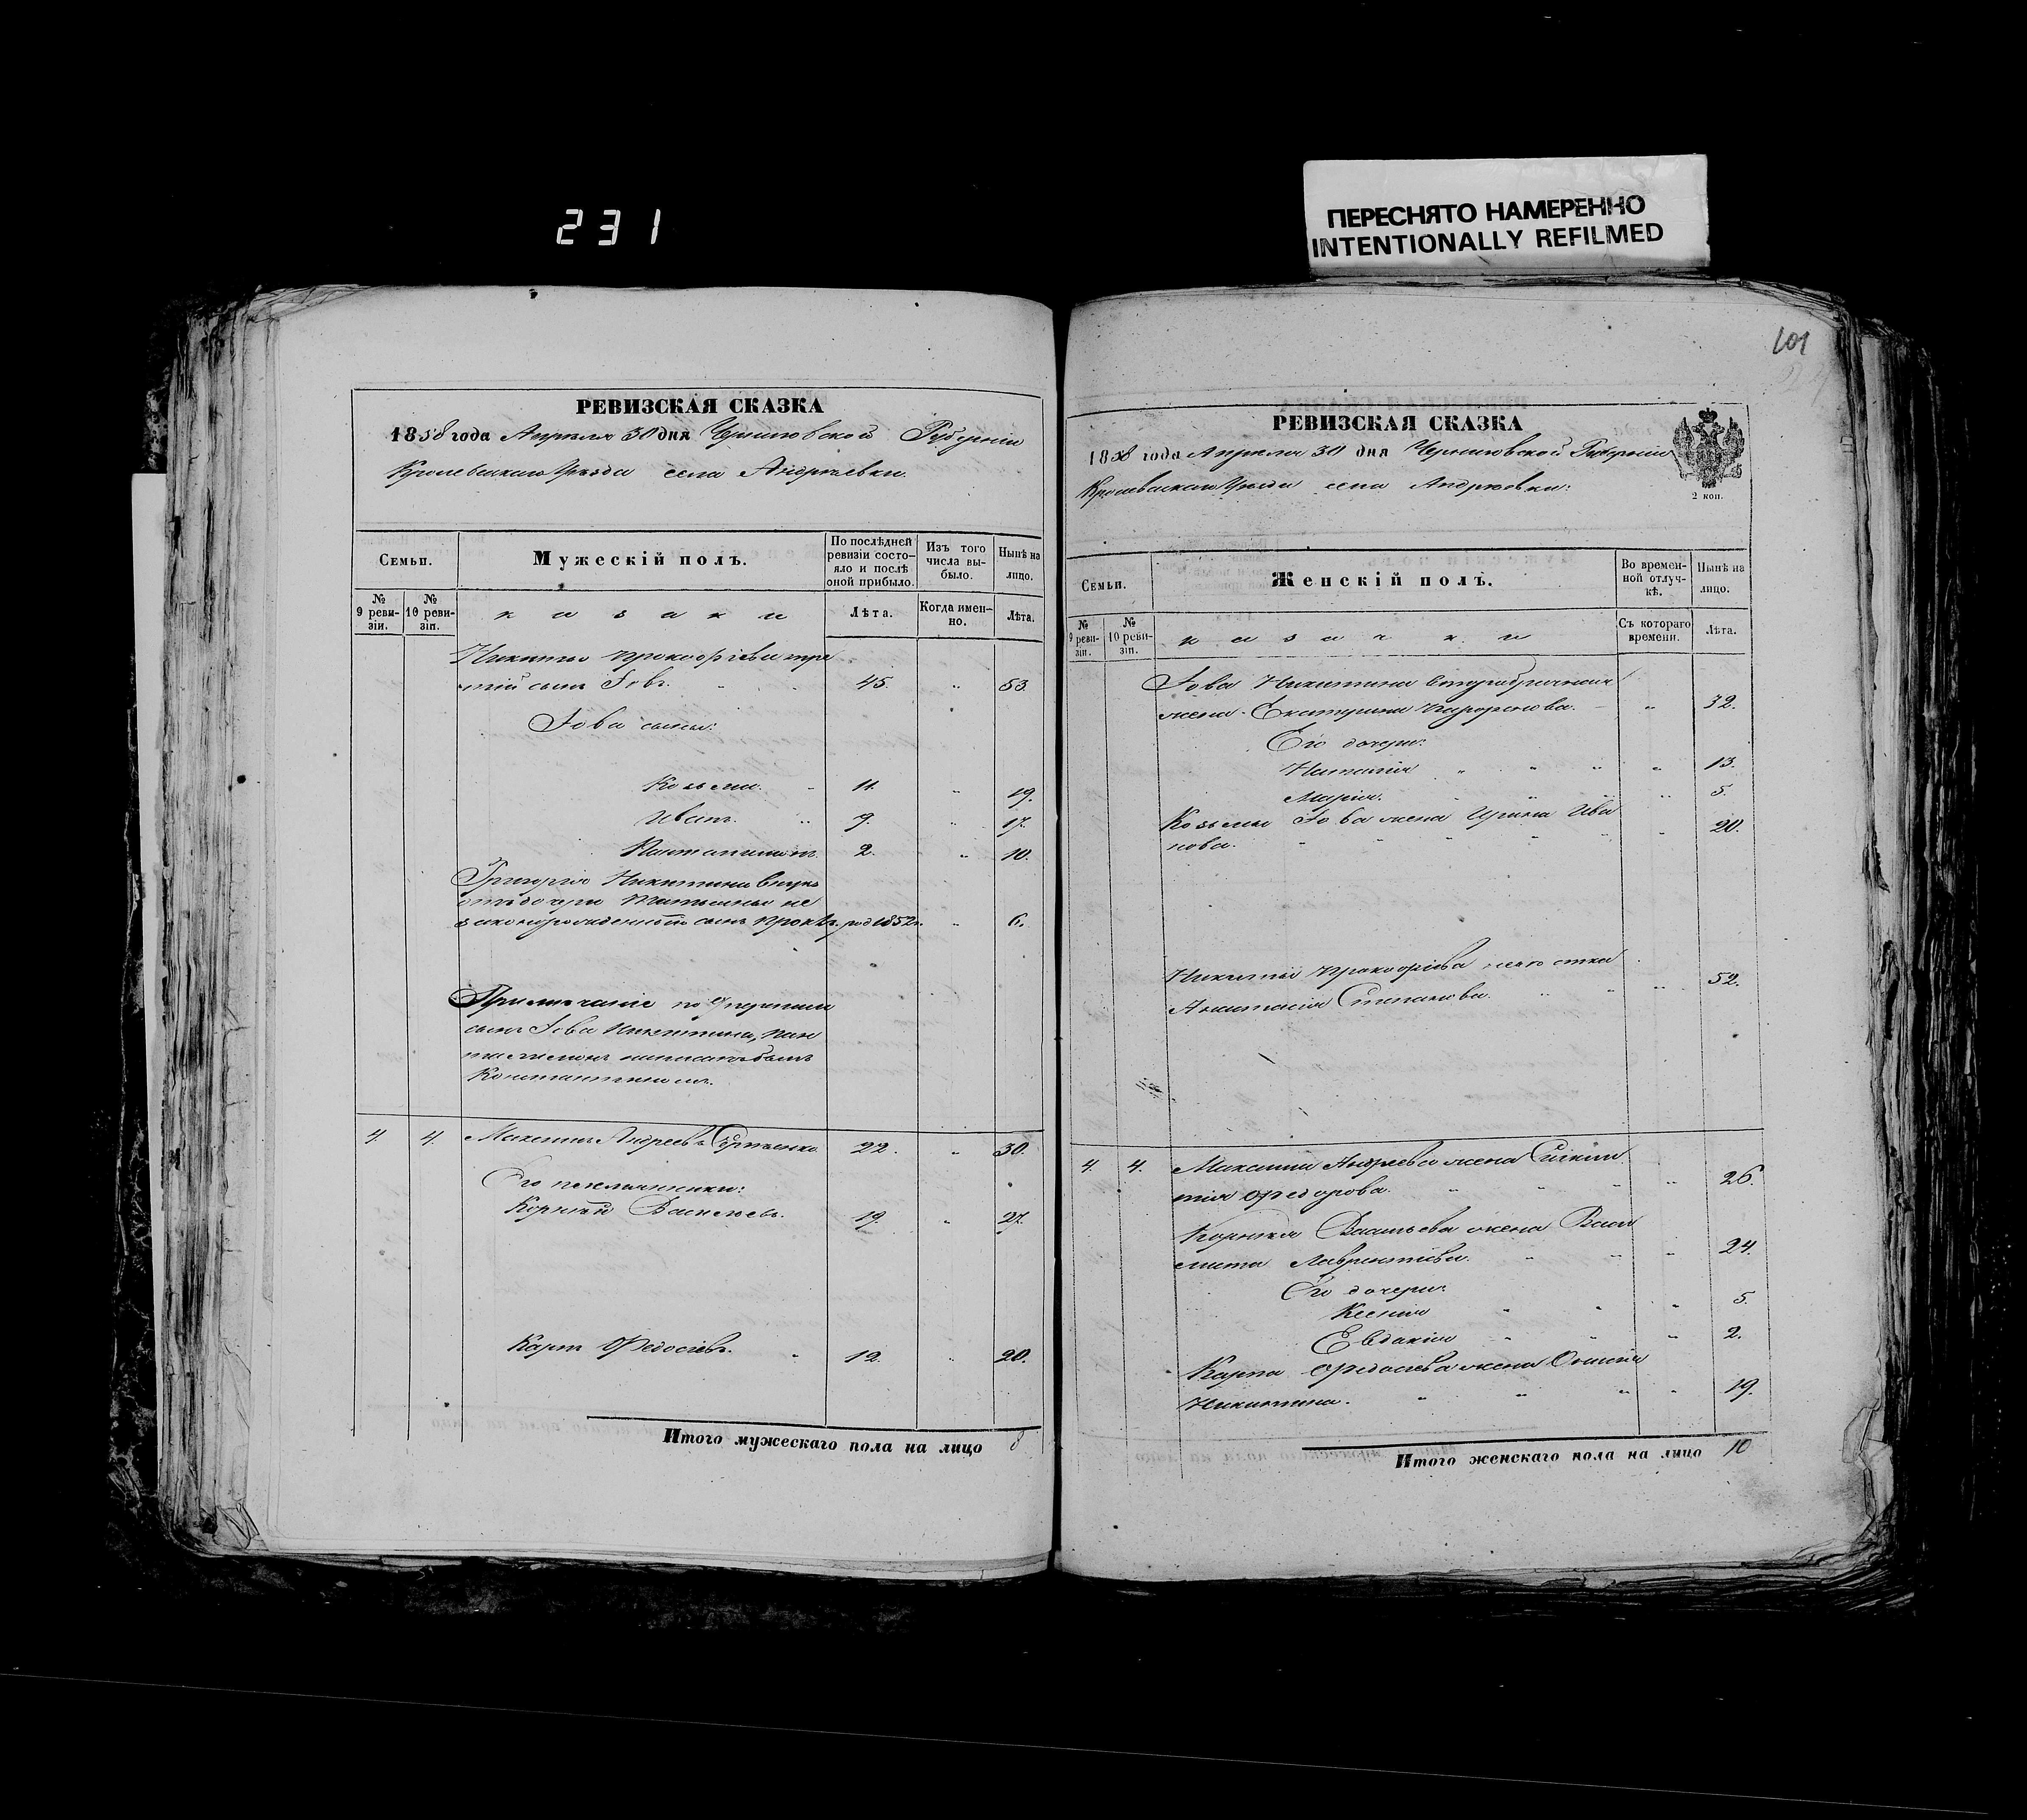 231
ПЕРЕСНЯТО НАМЕРЕННО
INTENTIONALLY REFILMED
РЕВИЗСКАЯ СКАЗКА
1858 года Апреля 30 дня Черниговской Губернии
Кролевецкаго Уезда села Андреевки.
Семьи.
Мужескій полъ.
По послѣдней ревизіи состо-
яло и послѣ
оной прибыло.
Изъ того
числа вы-
было.
Нынѣ на
лицо.
№
9 реви-
зіи.
№
10 реви-
зіи.
казаки
Лѣта.
Когда имен-
но.
Лѣта.
Никиты Прокофіева тре
тій сынъ Іовъ. 45. 53.
Іова сыны:
Козьма. 11. 19.
Иванъ. 9. 17.
Пантелимонъ 2. 10.
Григорія Никитина внукъ
отъ дочери Татьяны не
законорожденный сынъ род 1852г. 6.
Примѣчаніе по
сынъ Іова Никитина, Пан
телимонъ написанъ былъ
Константиномъ.
4. 4. Максимъ Андреевъ 22. 30.
Его племянники:
Корнѣй Васильевъ. 19. 27.
Карпъ Федосіевъ. 12. 20.
Итого мужескаго пола на лицо 8
101
РЕВИЗСКАЯ СКАЗКА
1858 года Апреля 30 дня Черниговской Губерніи
Кролевецкаго Уезда села Андреевки:
2 коп.
Семьи.
Женскій полъ.
Во времен-
ной отлуч-
кѣ.
Нынѣ на
лицо.
№
9 реви-
зіи.
№
10 реви-
зіи.
казачки
Съ котораго
времени.
Лѣта.
Іова Никитина второбрачная
жена Екатерина 32.
Его дочери:
Наталія 13.
Марія. 5.
Козьмы Іова жена Ирина Ива
нова. 20.
Никиты Прокофіева невѣстка
Анастасія Степанова. 52.
4. 4. Максима Андреева жена
тія Федорова. 26.
Корнѣя Васильева жена Васи
лиса Лаврентіева. 24.
Его дочери:
Ксенія 5.
Евдокія 2.
Карпа Федосіева жена
Никитина. 19.
Итого женскаго пола на лицо 10